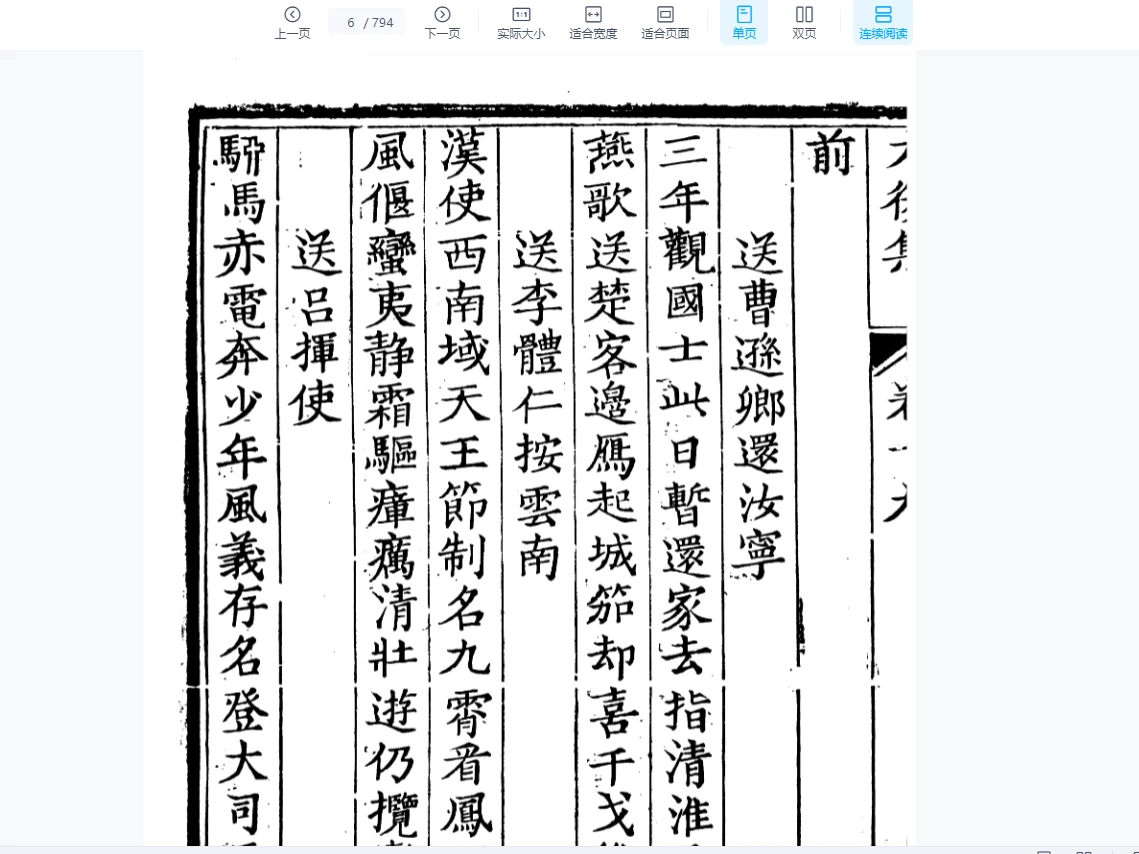 上一页
6 / 794
下一页
实际大小
适合宽度
适合页面
单页
双页
连续阅读
前
送曹遜鄉還汝寧
三年觀國士此日暫還家去指清淮
燕歌送楚客邊鴈起城笳却喜千戈
送李體仁按雲南
漢使西南域天王節制名九霄看鳳
風偃蠻夷静霜驅瘴癘清壯遊仍攬
送吕揮使
駵馬赤電奔少年風義存名登大司